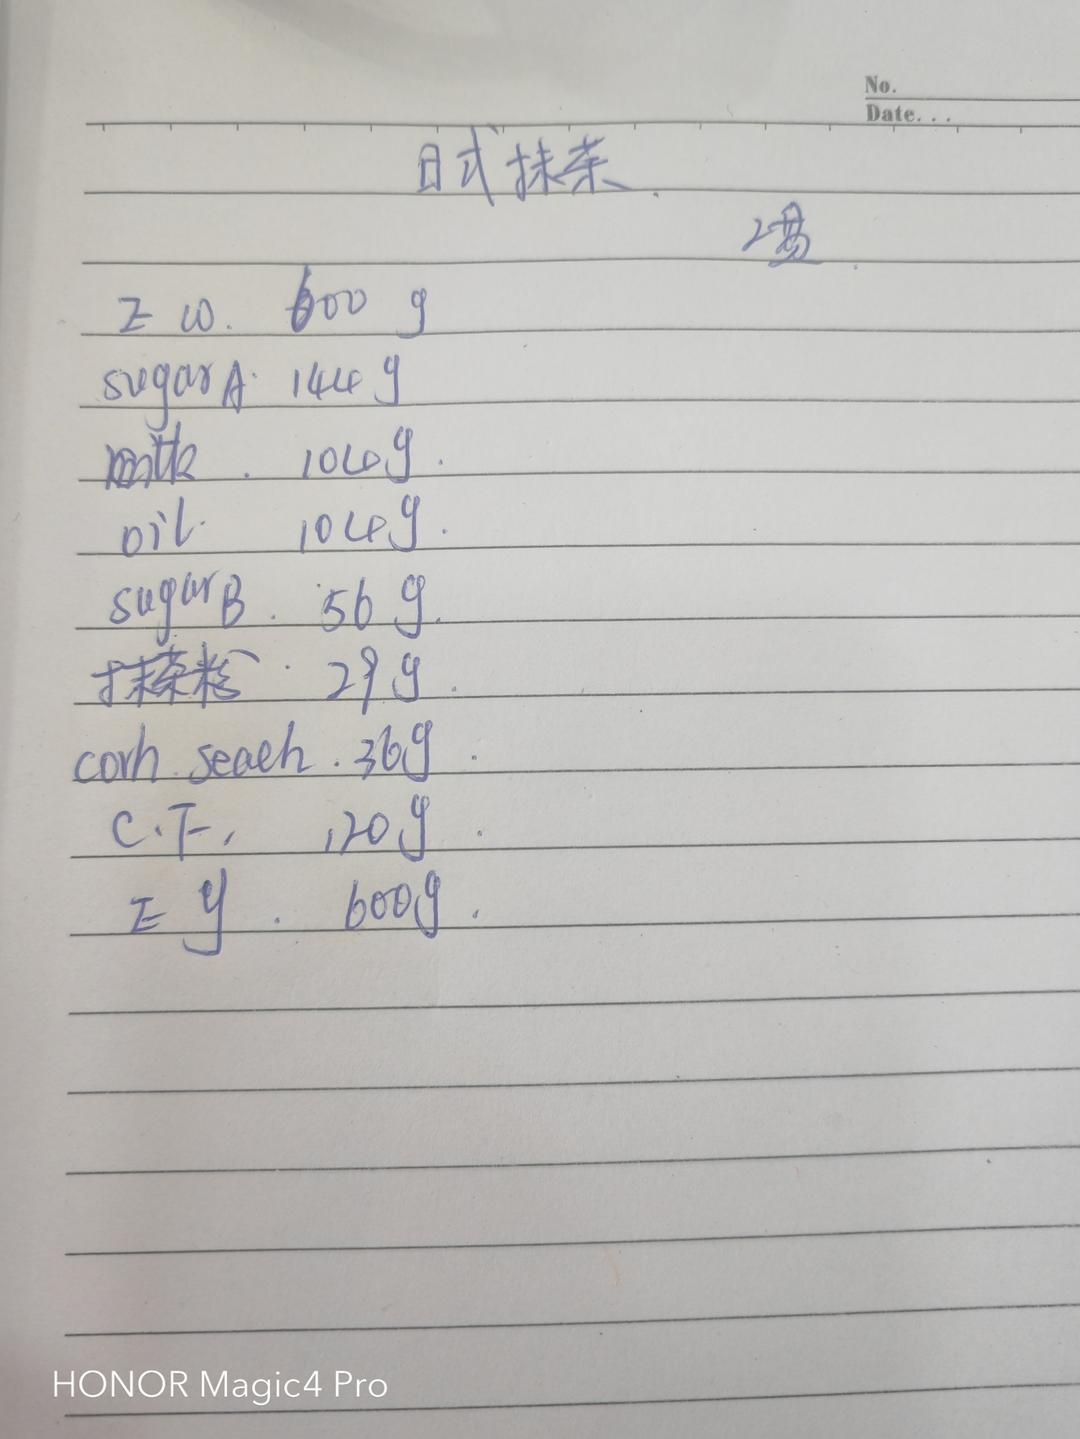 No.
Date. . .
日式抹茶.
2盘.
E w. 600 g
sugar A. 144g
milk . 104g.
oil. 104g.
sugar B. 56g.
抹茶粉. 29g.
corh seach. 36g.
C.F. 120g.
E y. 600g.
HONOR Magic4 Pro